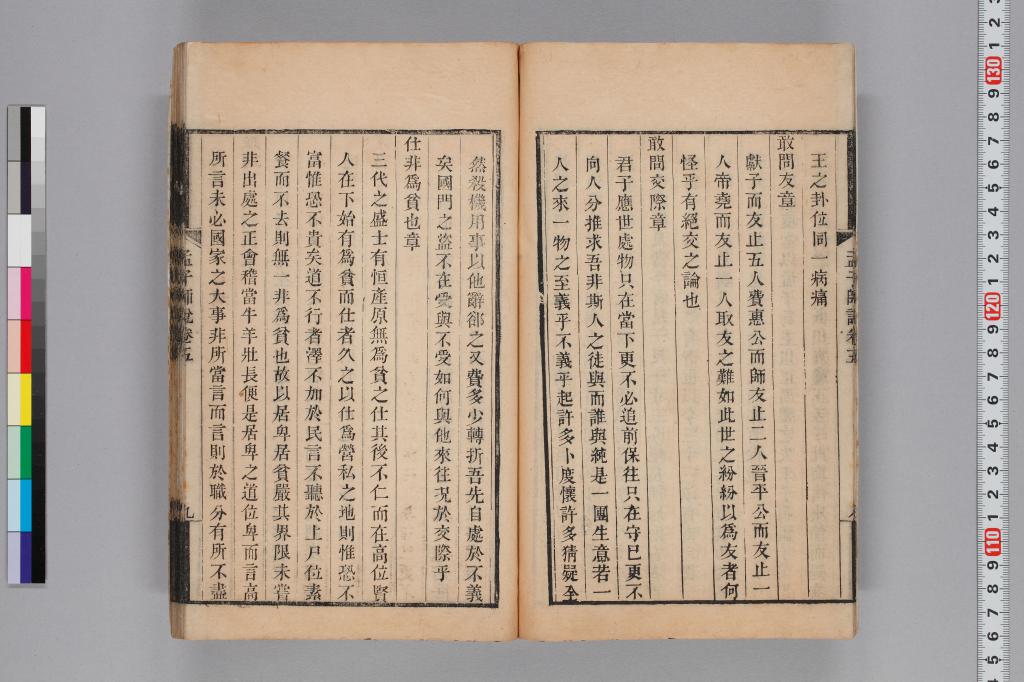 王之卦位同一病痛
敢問友章
獻子而友止五人費惠公而師友止二人晉平公而友止一
人帝堯而友止一人取友之難如此世之紛紛以爲友者何
怪乎有絕交之論也
敢問交際章
君子應世處物只在當下更不必追前保往只在守已更不
向人分推求吾非斯人之徒與而誰與純是一團生意若一
人之來一物之至義乎不義乎起許多卜度懷許多猜疑全
然殺機用事以他辭郤之又費多少轉折吾先自處於不義
矣國門之盜不在受與不受如何與他來往况於交際乎
仕非爲貧也章
三代之盛士有恒產原無爲貧之仕其後不仁而在高位賢
人在下始有爲貧而仕者久之以仕爲營私之地則惟恐不
富惟恐不貴矣道不行者澤不加於民言不聽於上尸位素
餐而不去則無一非爲貧也故以居卑居貧嚴其界限未嘗
非出處之正會稽當牛羊壯長便是居卑之道位卑而言高
所言未必國家之大事非所當言而言則於職分有所不盡
孟子師說卷五
九
130
120
110